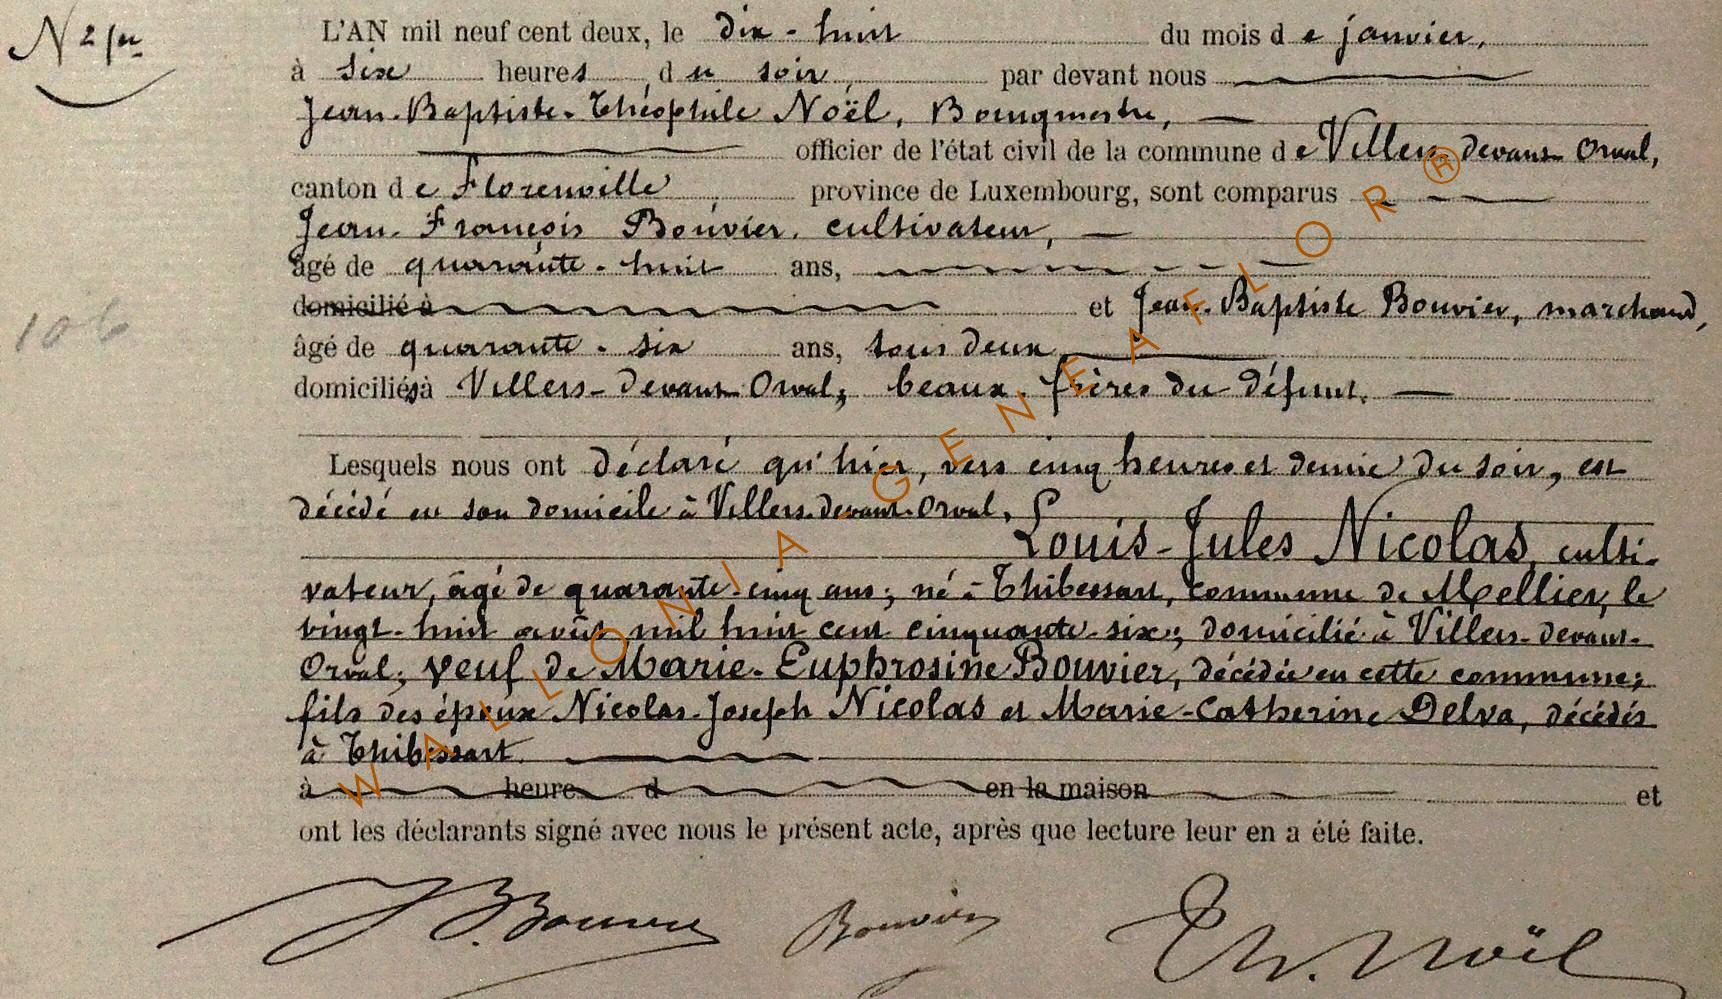 N° 2
L'AN mil neuf cent deux, le dix-huit du mois de janvier,
à six heures du soir, par devant nous
Jean-Baptiste-Théophile Noël, Bourgmestre,
officier de l'état civil de la commune de Villers-devant-Orval,
canton de Florenville, province de Luxembourg, sont comparus
Jean-François Bouvier, cultivateur,
âgé de quarante-huit ans,
domicilié à et Jean-Baptiste Bouvier, marchand,
âgé de quarante-six ans, tous deux
domiciliés à Villers-devant-Orval, beaux-frères du défunt.
106
Lesquels nous ont déclaré qu'hier, vers cinq heures et demie du soir, est
décédé en son domicile à Villers-devant-Orval,
Louis-Jules Nicolas, culti-
vateur, âgé de quarante-cinq ans; né à Thibessart, commune de Mellier, le
vingt-huit août mil huit cent cinquante-six; domicilié à Villers-devant-
Orval; veuf de Marie-Euphrosine Bouvier, décédée en cette commune;
fils des époux Nicolas-Joseph Nicolas et Marie-Catherine Delva, décédés
à Thibessart.
à heure d en la maison et
ont les déclarants signé avec nous le présent acte, après que lecture leur en a été faite.
J.B. Bouvier Bouvier Th. Noël
WALLONIA-GENEAFLOR®